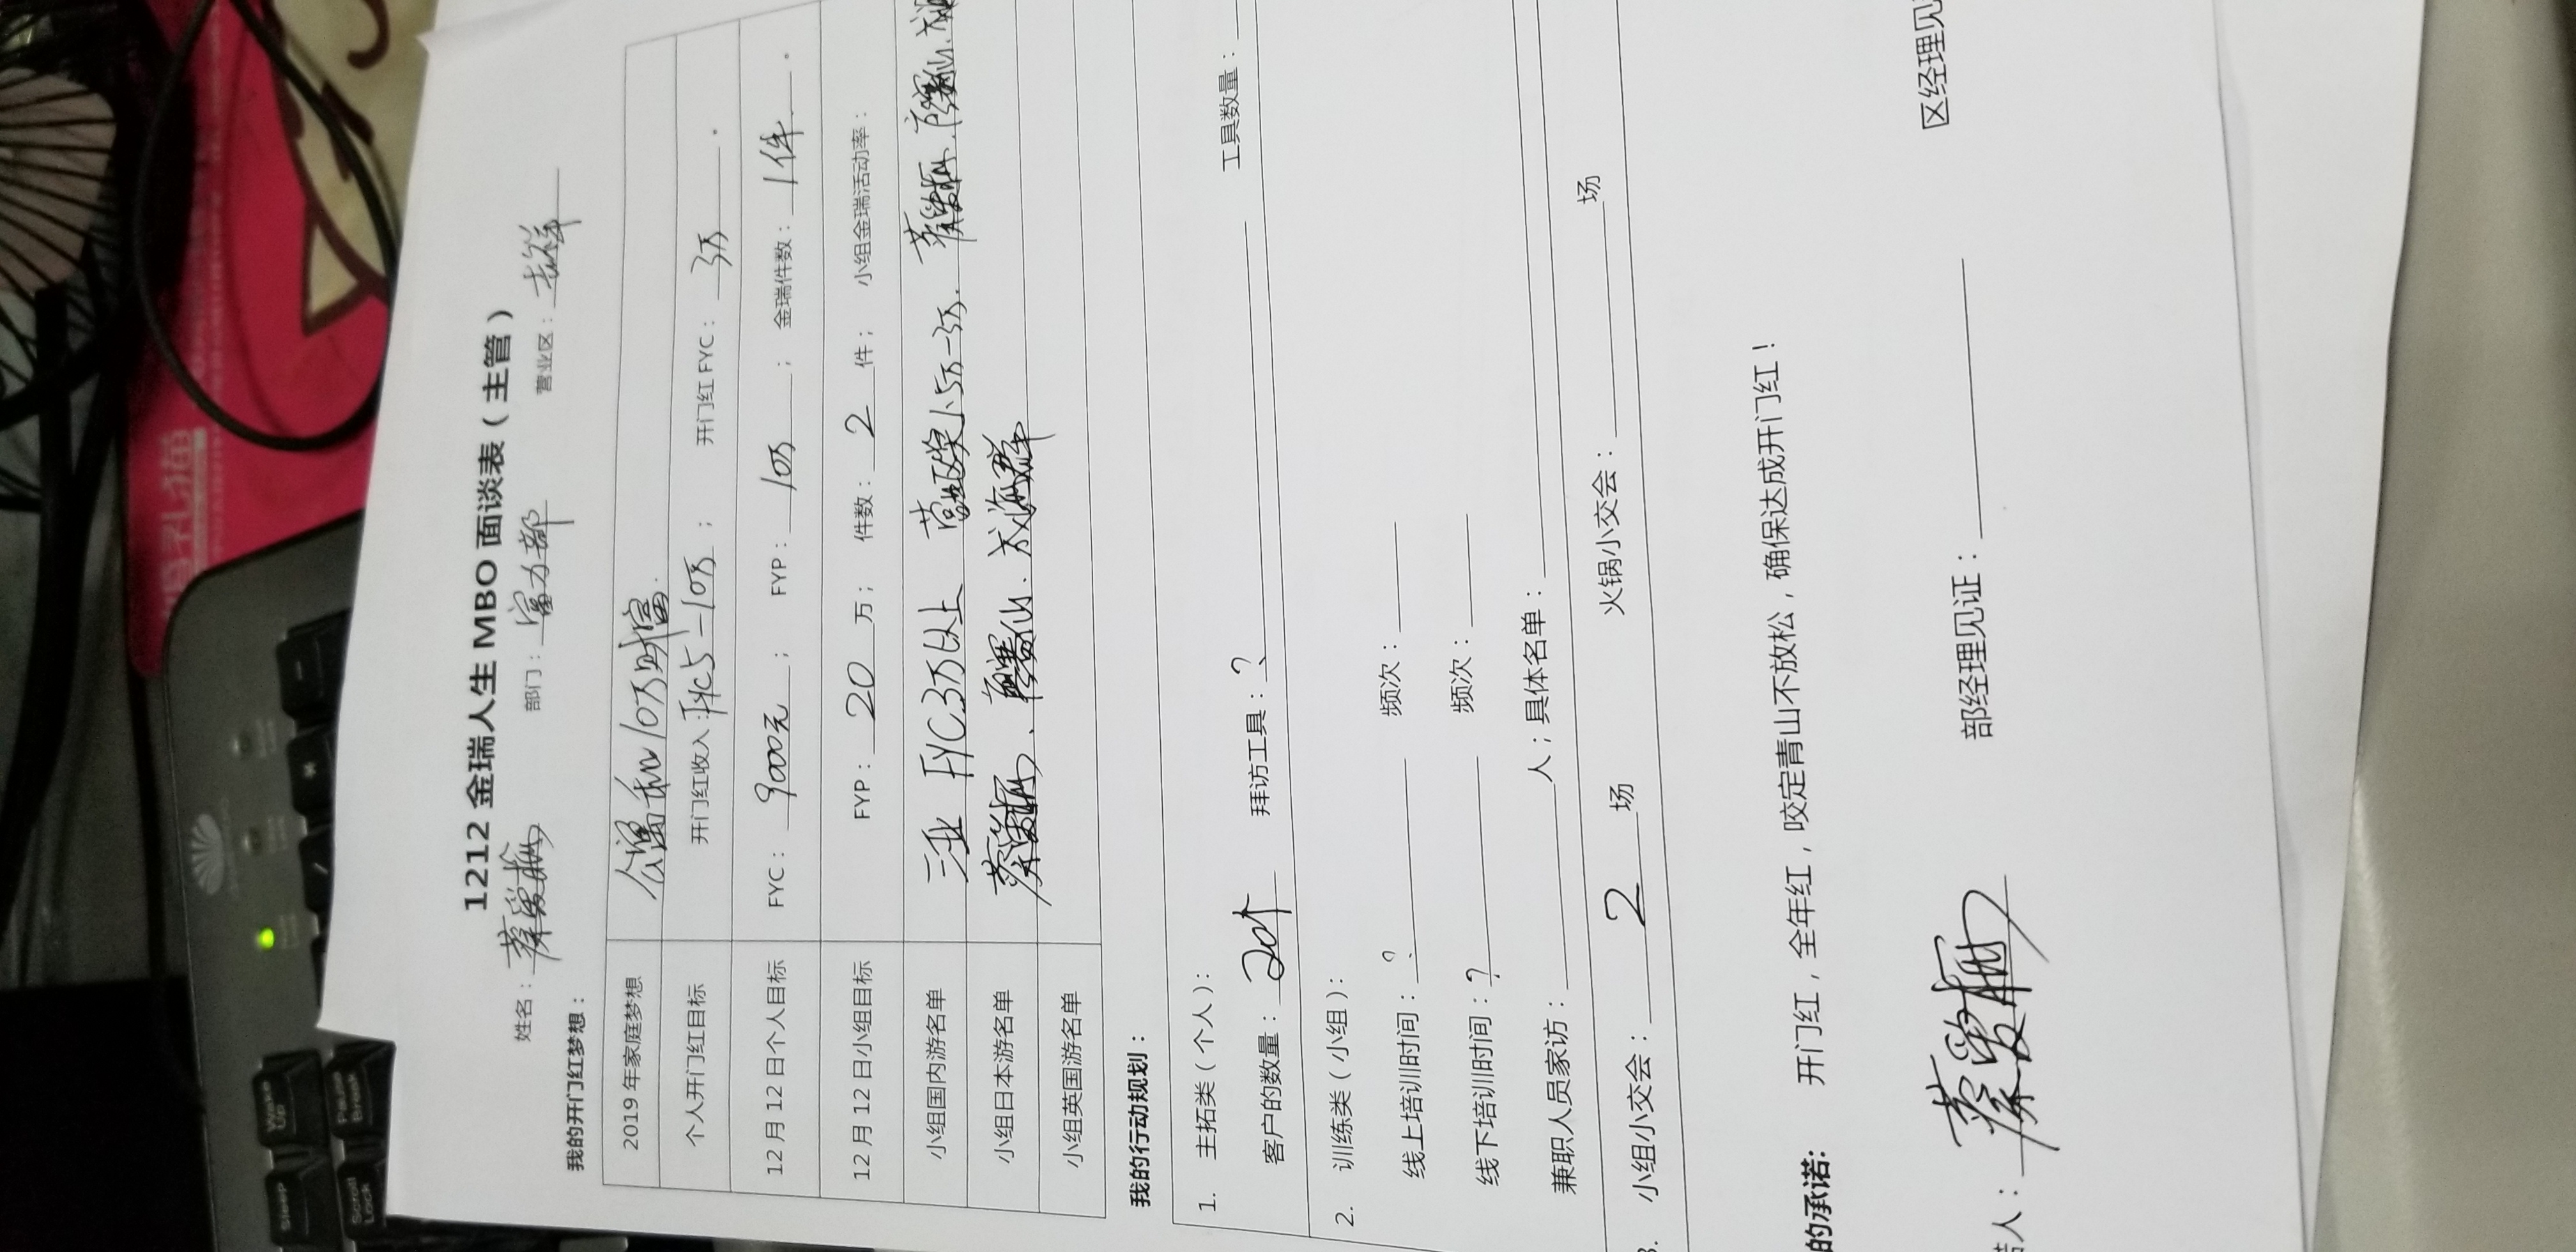 1212 金瑞人生 MBO 面谈表（主管）
姓名：蔡爱梅 部门：富力部 营业区：吉祥
我的开门红梦想：
2019 年家庭梦想 10万财富.
个人开门红目标 开门红收入：FYC5-10万； 开门红 FYC：3万.
12 月 12 日个人目标 FYC：9000元； FYP：10万； 金瑞件数：1件.
12 月 12 日小组目标 FYP：20万； 件数：2件； 小组金瑞活动率：
小组国内游名单 三亚 FYC3万以上
小组日本游名单 蔡爱梅、刘海群
小组英国游名单
我的行动规划：
1. 主拓类（个人）：
客户的数量：20个 拜访工具：? 工具数量：
2. 训练类（小组）：
线上培训时间：? 频次：
线下培训时间：? 频次：
兼职人员家访：人；具体名单：
小组小交会：2场 火锅小交会：场
的承诺: 开门红，全年红，咬定青山不放松，确保达成开门红！
人：蔡爱梅 部经理见证： 区经理见
HUAWEI
Sleep
Wake Up
Scroll Lock
Pause Break